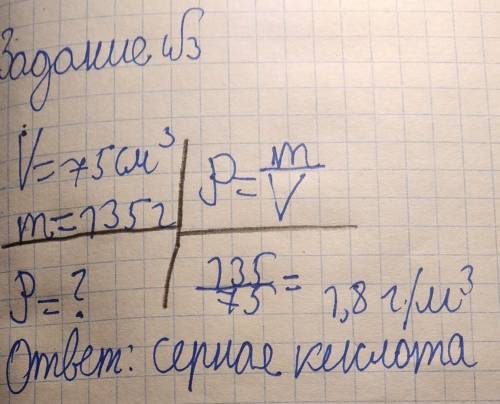 Задание №3
V=75см³ ρ=m/V
m=135г
ρ=? 135/75= 1,8 г/м³
Ответ: серная кислота